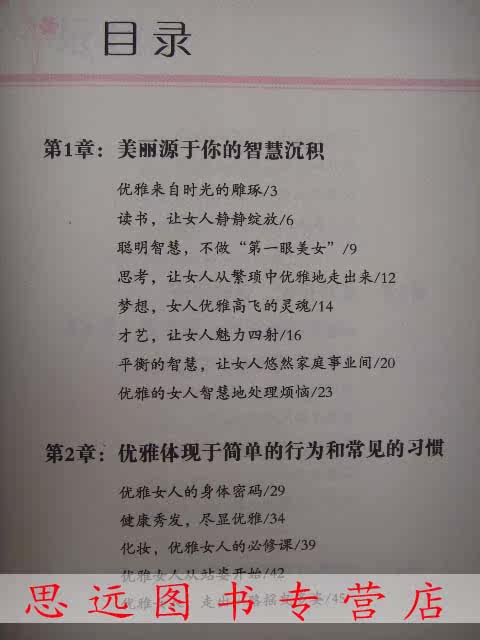 目录
第1章：美丽源于你的智慧沉积
优雅来自时光的雕琢/3
读书，让女人静静绽放/6
聪明智慧，不做“第一眼美女”/9
思考，让女人从繁琐中优雅地走出来/12
梦想，女人优雅高飞的灵魂/14
才艺，让女人魅力四射/16
平衡的智慧，让女人悠然家庭事业间/20
优雅的女人智慧地处理烦恼/23
第2章：优雅体现于简单的行为和常见的习惯
优雅女人的身体密码/29
健康秀发，尽显优雅/34
化妆，优雅女人的必修课/39
优雅女人从站姿开始/42
优雅 走出 摇 /45
思远图书专营店